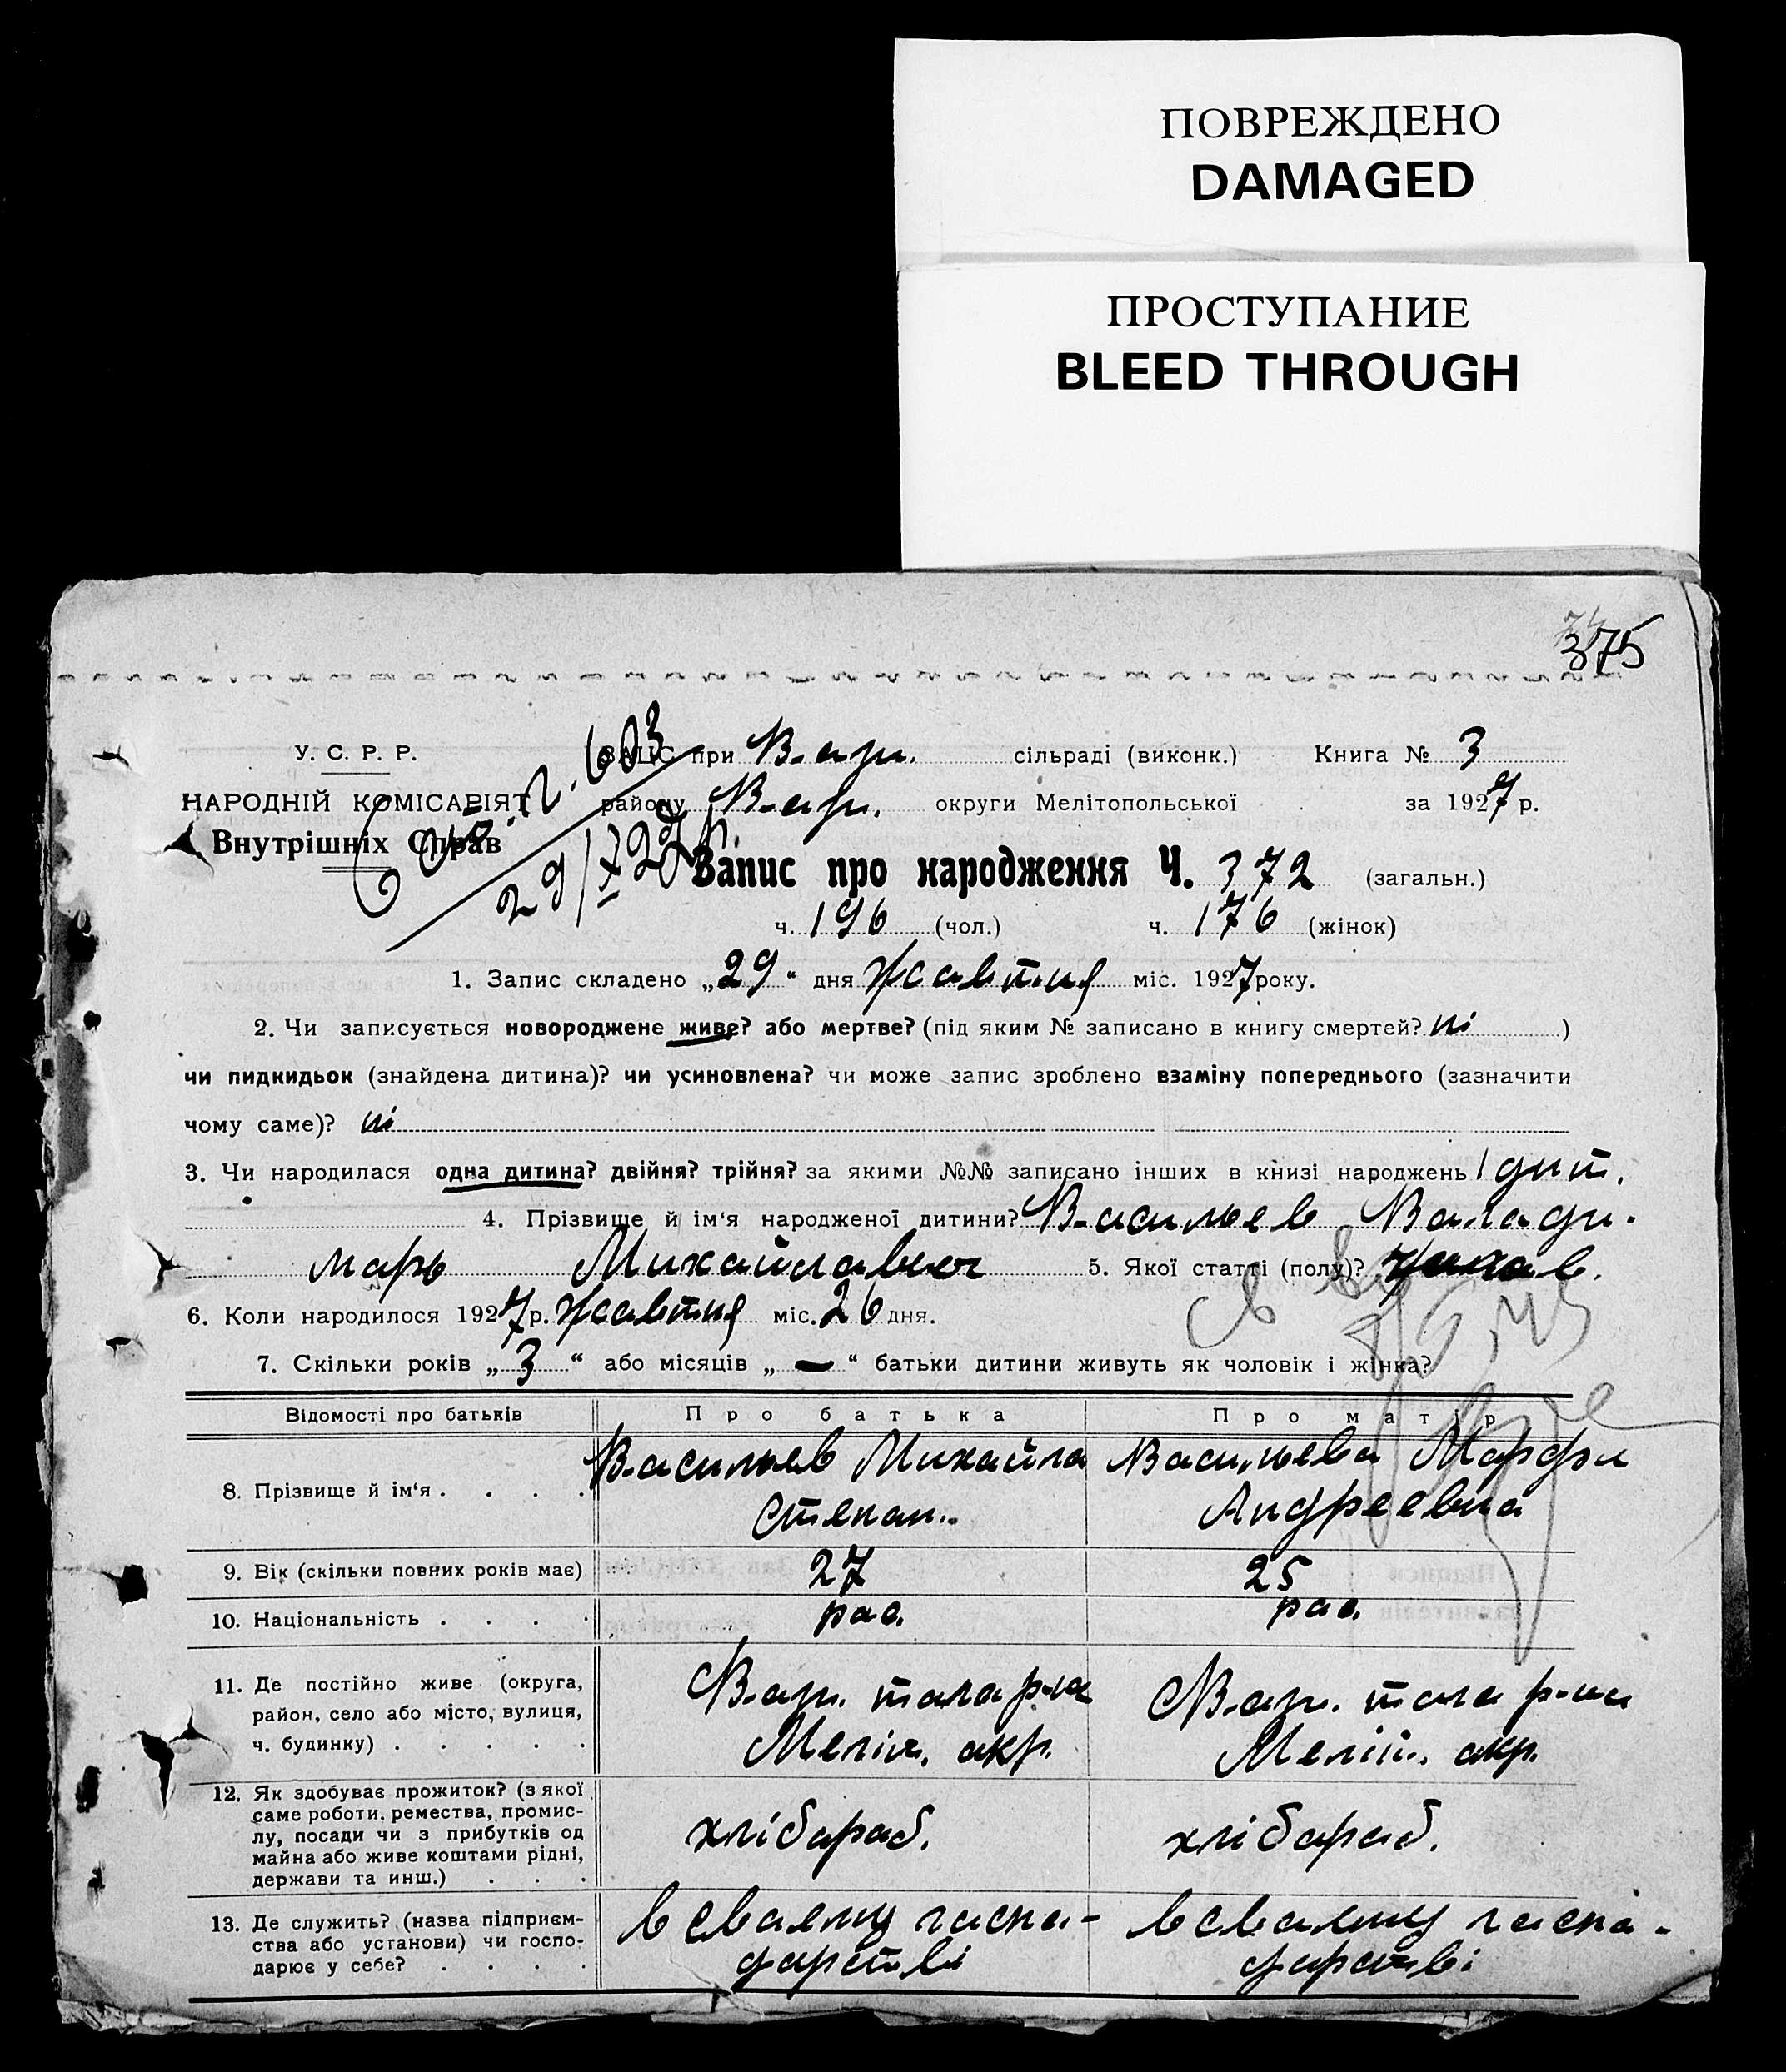 ПОВРЕЖДЕНО
DAMAGED
ПРОСТУПАНИЕ
BLEED THROUGH
375
У. С. Р. Р.
НАРОДНІЙ КОМІСАРІЯТ
Внутрішніх Справ
603
29/X 27 р.
ЗАПІС при В-ар. сільраді (виконк.) Книга № 3
району В-ар. округи Мелітопольської за 1927 р.
Запис про народження Ч. 372 (загальн.)
ч. 196 (чол.) ч. 176 (жінок)
1. Запис складено „29“ дня жавтня міс. 1927 року.
2. Чи записується новороджене живе? або мертве? (під яким № записано в книгу смертей? ні )
чи пидкидьок (знайдена дитина)? чи усиновлена? чи може запис зроблено взаміну попереднього (зазначити
чому саме)? ні
3. Чи народилася одна дитина? двійня? трійня? за якими №№ записано інших в книзі народжень 1 дит.
4. Прізвище й ім'я народженої дитини? Васильев Валади-
марь Михайлавич 5. Якої статті (полу)?
6. Коли народилося 1927 р. жавтня міс. 26 дня.
7. Скільки років „3“ або місяців „—“ батьки дитини живуть як чоловік і жінка?
Відомості про батьків Про батька Про матір
8. Прізвище й ім'я . . . . Васильев Михайла Васильева Марфа
Степан. Андреевна
9. Вік (скільки повних років має) 27 25
10. Національність . . . . рас. рас.
11. Де постійно живе (округа,
район, село або місто, вулиця,
ч. будинку) . . . . .
В-ар. тага р-на
Меліт. акр.
В-ар. тага р-на
Меліт. акр.
12. Як здобуває прожиток? (з якої
саме роботи, ремества, промис-
лу, посади чи з прибутків од
майна або живе коштами рідні,
держави та инш.) . . .
хлібараб. хлібараб.
13. Де служить? (назва підприєм-
ства або установи) чи госпо-
дарює у себе? . . . .
в сваему гаспа-
дарстві
в сваему гаспа-
дарстві